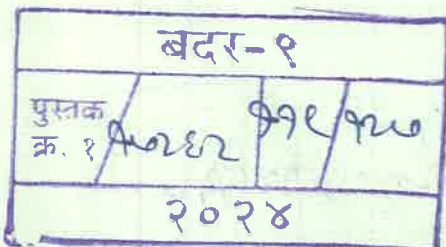 बदर-९
पुस्तक
क्र. १ १७२६२ ११९ १२७
२०२४